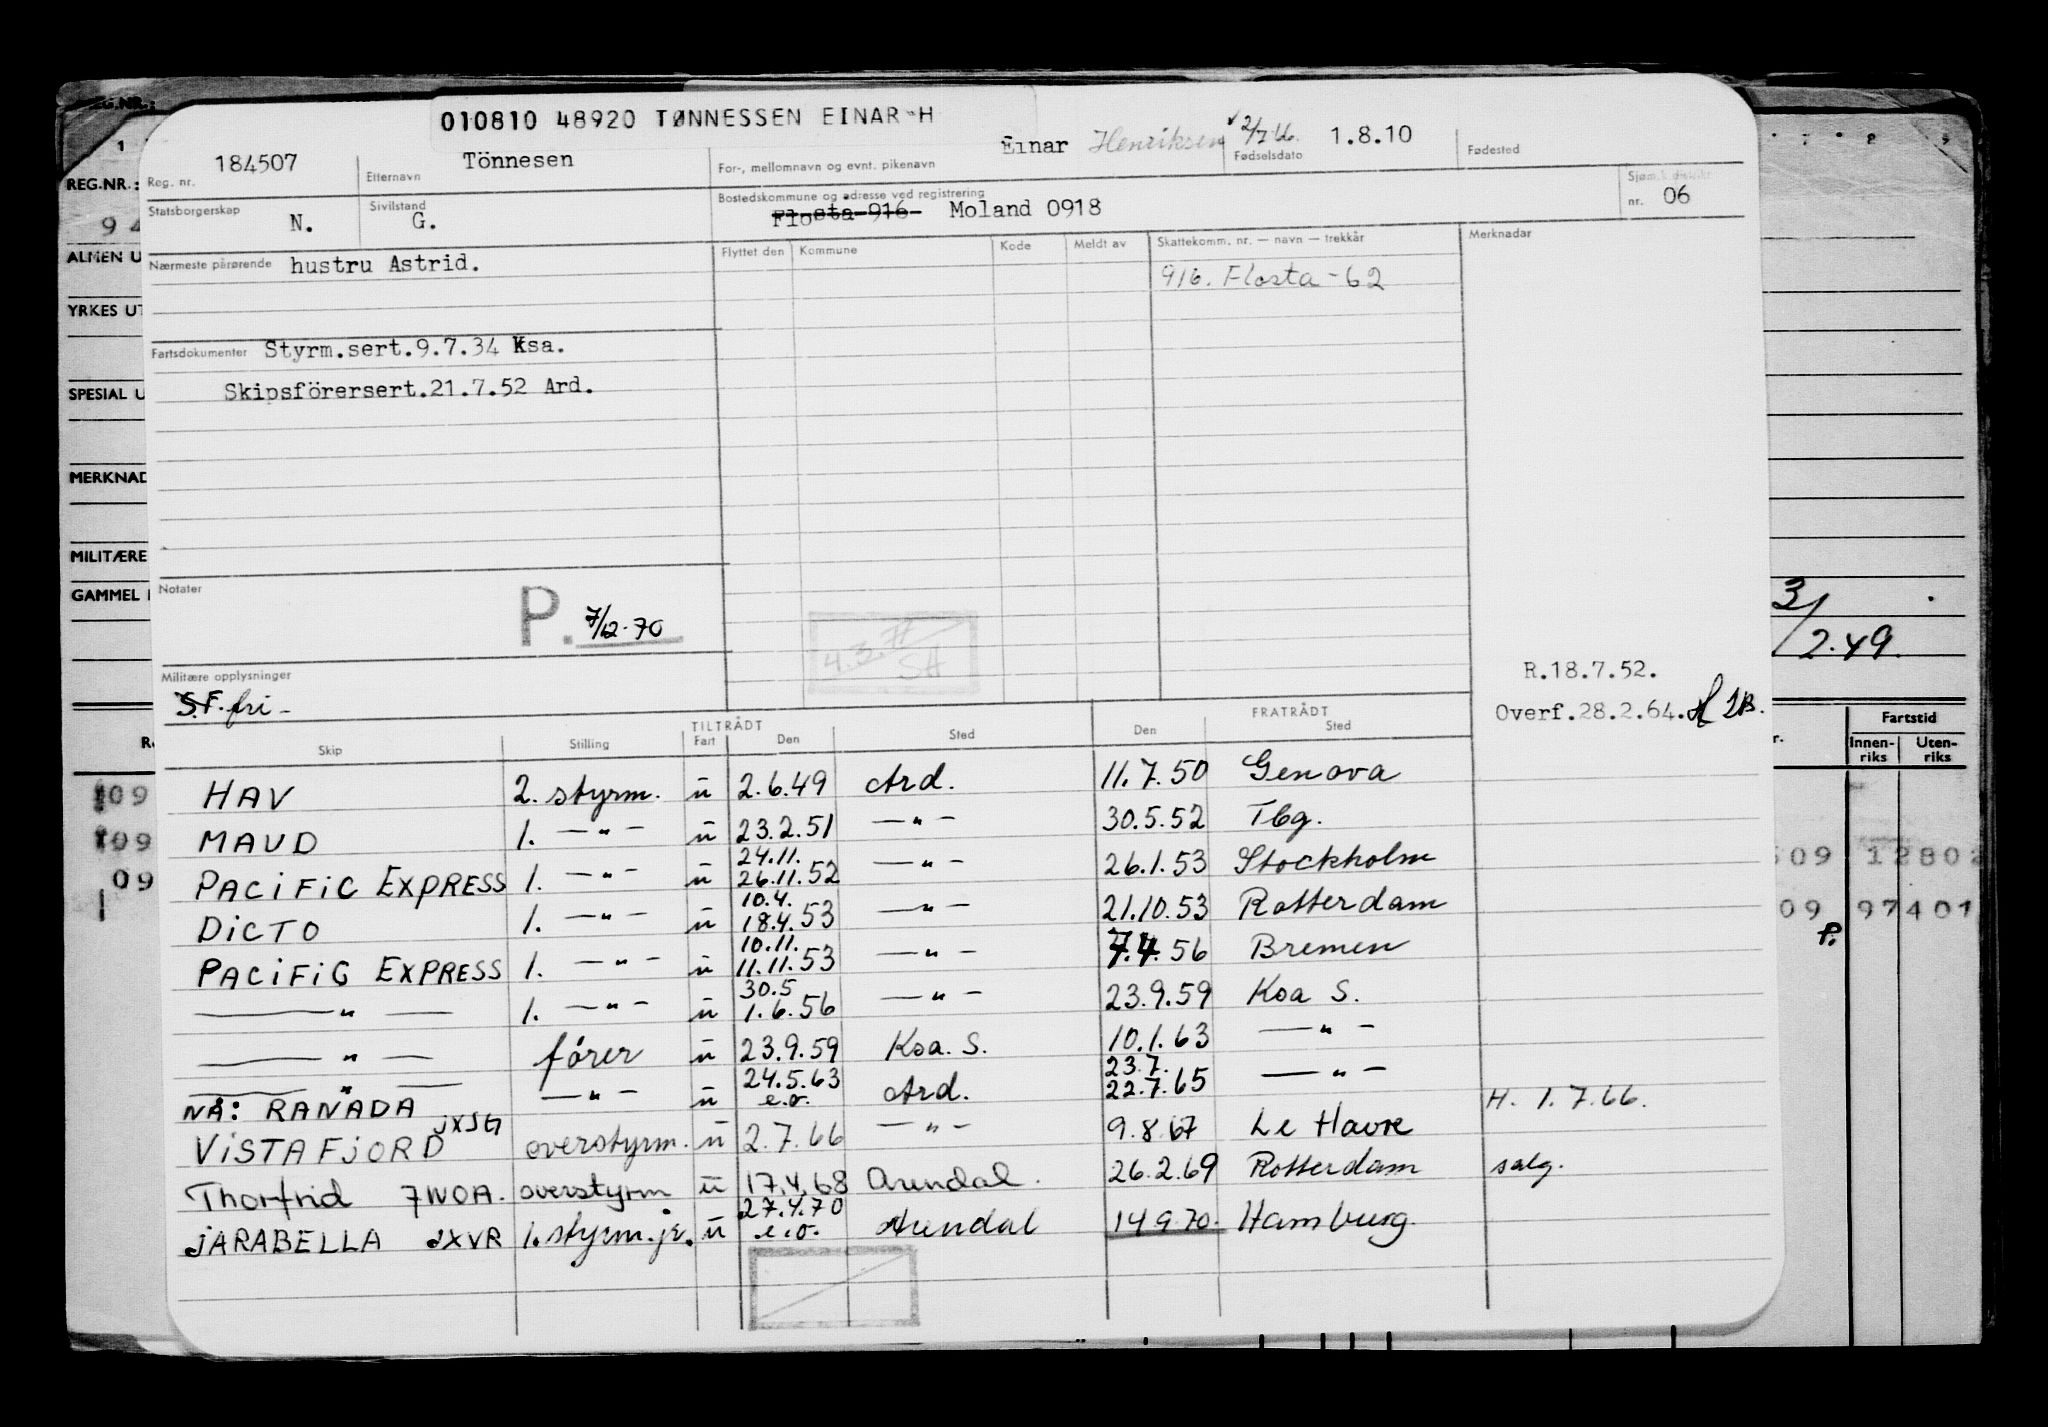 010810 48920 TØNNESSEN EINAR H
Reg. nr. 184507 Etternavn Tönnesen For-, mellomnavn og evnt. pikenavn Einar Henriksen 2/7 66. Fødselsdato 1.8.10 Fødested
Statsborgerskap N. Sivilstand G. Bostedskommune og adresse ved registrering Flosta 916 Moland 0918 Sjøm.k.distrikt nr. 06
Nærmeste pårørende hustru Astrid. Flyttet den Kommune Kode Meldt av Skattekomm. nr. — navn — trekkår Merknadar
916. Flosta - 62
Fartsdokumenter Styrm.sert.9.7.34 Ksa.
Skipsförersert.21.7.52 Ard.
Notater
P. 7/12-70
4.3.71 SH
Militære opplysninger
S.F. fri -
R.18.7.52.
Overf.28.2.64.
TILTRÅDT FRATRÅDT
Skip Stilling Fart Den Sted Den Sted
HAV 2. styrm. u 2.6.49 Ard. 11.7.50 Genova
MAUD 1. — " — u 23.2.51 — " — 30.5.52 Tbg.
PACIFIC EXPRESS 1. — " — u 24.11. 26.11.52 — " — 26.1.53 Stockholm
DICTO 1. — " — u 10.4. 18.4.53 — " — 21.10.53 Rotterdam
PACIFIC EXPRESS 1. — " — u 10.11. 11.11.53 — " — 7.4.56 Bremen
— " — 1. — " — u 30.5 1.6.56 — " — 23.9.59 Ksa S.
— " — fører u 23.9.59 Ksa. S. 10.1.63 — " —
— " — — " — u 24.5.63 e.o. Ard. 23.7. 22.7.65 — " —
NÅ: RANADA
VISTAFJORD JXSG overstyrm. u 2.7.66 — " — 9.8.67 Le Havre H. 1.7.66.
Thorfrid 7WOA. overstyrm u 17.4.68 Arendal. 26.2.69 Rotterdam salg.
JARABELLA JXVR 1. styrm. jr. u 27.4.70 e.o. Arendal 14.9.70. Hamburg.
REG.NR.:
1 7 8 9
REG.NR.:
94
ALMEN U
YRKES UT
SPESIAL U
MERKNAD
MILITÆRE
GAMMEL
3/
2.49.
Fartstid
Innen-riks Uten-riks
09
09 509 12802
09 09 97401
P.